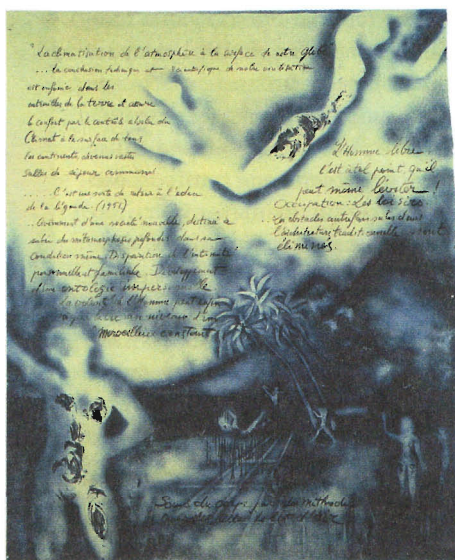 "La climatisation de l'atmosphère à la surface de notre Globe
... la conclusion technique et scientifique de notre civilisation
est enfouie dans les
entrailles de la terre et assure
le confort par le contrôle absolu du
Climat à la surface de tous
les continents, devenus vastes
salles de séjour communes
.... C'est une sorte de retour à l'eden
de la légende (1951)
... Avènement d'une société nouvelle, destinée à
subir des métamorphoses profondes dans sa
condition même. Disparition de l'intimité
personnelle et familiale. Développement
d'une ontologie impersonnelle
La volonté de l'Homme peut enfin
au niveau d'un
"Merveilleux constant"
L'Homme libre
l'est à tel point, qu'il
peut même léviter !
Occupation : Les loisirs.
Les obstacles autrefois subis dans
l'architecture traditionnelle sont
éliminés.
Soins du corps par des méthodes
lit d'air